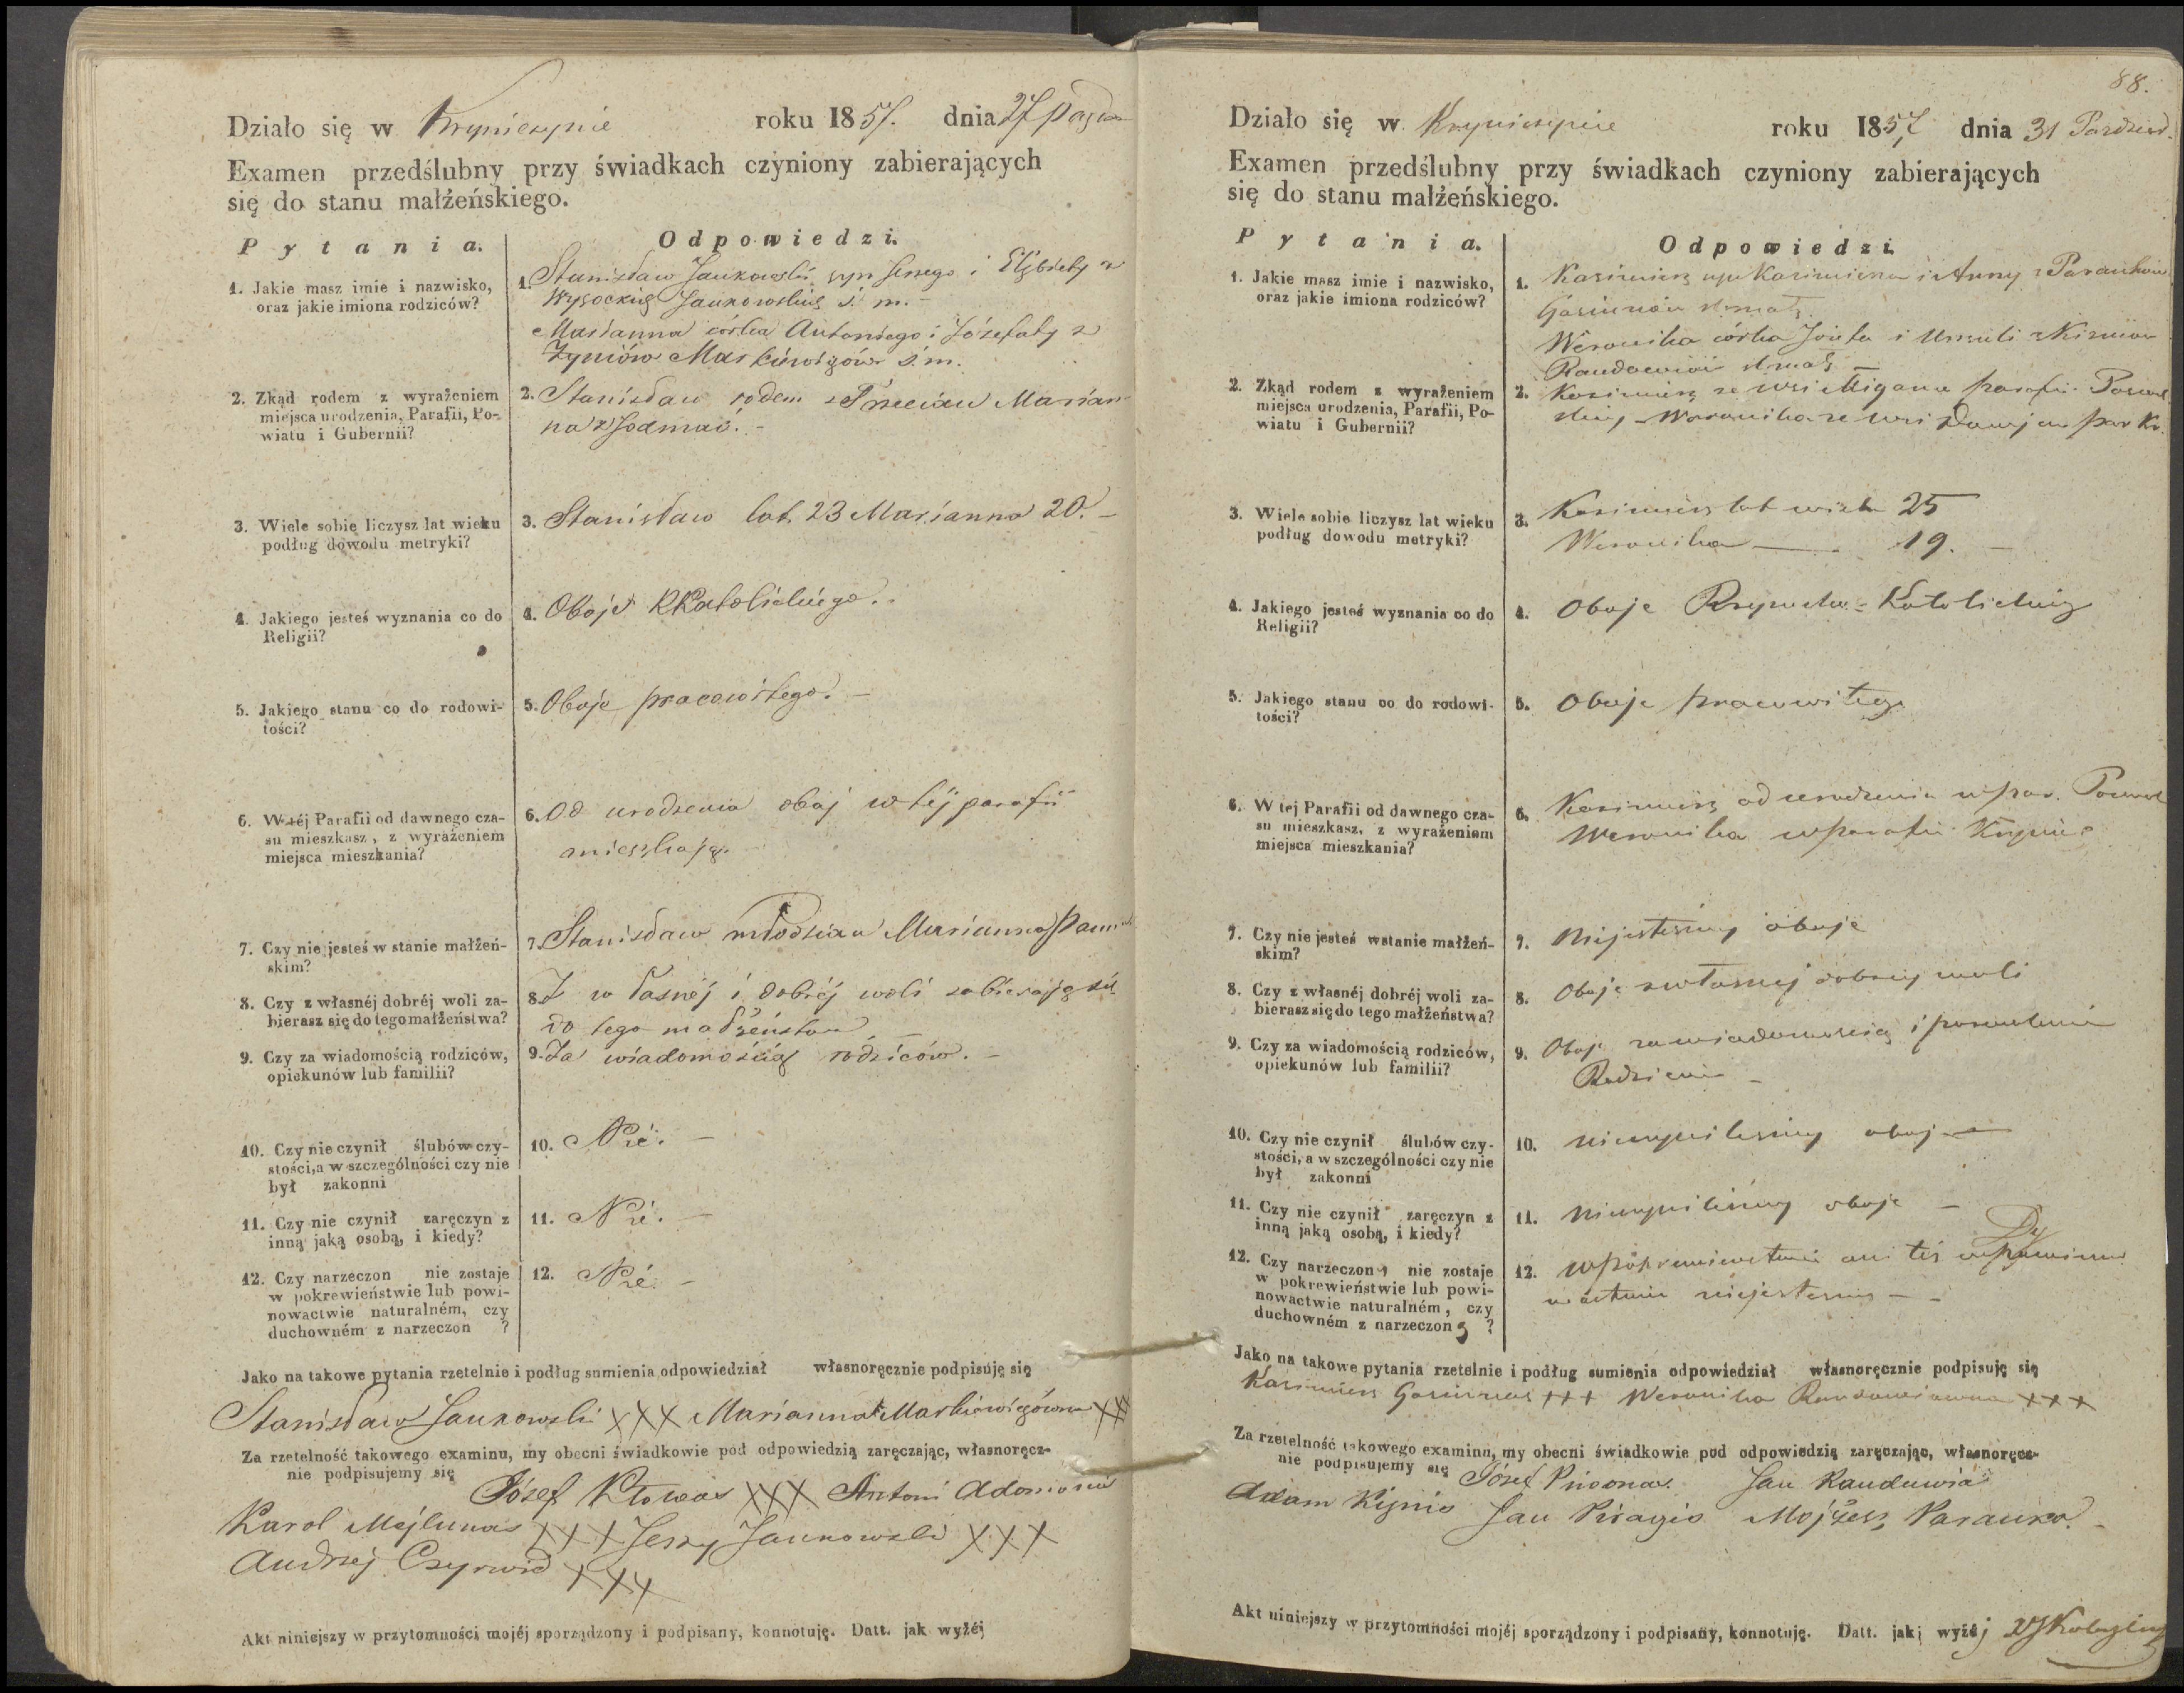 Działo się w Krynicypnie roku 1857. dnia 27 paźd
Examen przedślubny przy świadkach czyniony zabierających
się do stanu małżeńskiego.
Pytania. Odpowiedzi.
1. Jakie masz imie i nazwisko,
oraz jakie imiona rodziców?
1. Stanisław Jankowski syn Jerzego i Elżbiety z
Wysockich Jankowskich ś. m. –
Marianna córka Antoniego i Józefaty z
Żyniów Markiewiczów ś. m.
2. Zkąd rodem z wyrażeniem
miejsca urodzenia, Parafii, Po-
wiatu i Gubernii?
2. Stanisław rodem z Marian-
na z Jodmań. –
3. Wiele sobię liczysz lat wieku
podług dowodu metryki?
3. Stanisław lat 23 Marianna 20. –
4. Jakiego jesteś wyznania co do
Religii?
4. Oboje RKatolickiego.
5. Jakiego stanu co do rodowi-
tości?
5. Oboje pracowitego. –
6. W téj Parafii od dawnego cza-
su mieszkasz, z wyrażeniem
miejsca mieszkania?
6. Od urodzenia obaj w téj parafii
mieszkają.
7. Czy nie jesteś w stanie małżeń-
skim?
7. Stanisław młodzian Marianna panna
8. Czy z własnéj dobréj woli za-
bierasz się do tego małżeństwa?
8. Z własnéj i dobréj woli zabierają się
do tego małżeństwa –
9. Czy za wiadomością rodziców,
opiekunów lub familii?
9. Za wiadomością rodziców. –
10. Czy nie czynił ślubów czy-
stości, a w szczególności czy nie
był zakonni
10. Nié. –
11. Czy nie czynił zaręczyn z
inną jaką osobą, i kiedy?
11. Nié. –
12. Czy narzeczon nie zostaje
w pokrewieństwie lub powi-
nowactwie naturalném, czy
duchowném z narzeczon ?
12. Nié. –
Jako na takowe pytania rzetelnie i podług sumienia odpowiedział własnoręcznie podpisuję się
Stanisław Jankowski XXX Marianna Markiewiczówna XXX
Za rzetelność takowego examinu, my obecni świadkowie pod odpowiedzią zaręczając, własnoręcz-
nie podpisujemy się Józef Kłowas XXX Antoni Adomonis
Karol Mejlunas XXX Jerzy Jankowski XXX
Andrzej Czyrwid XXX
Akt niniejszy w przytomności mojéj sporządzony i podpisany, konnotuję. Datt. jak wyżéj
88.
Działo się w Krynicypnie roku 1857 dnia 31 Pazdzier.
Examen przedślubny przy świadkach czyniony zabierających
się do stanu małżeńskiego.
Pytania. Odpowiedzi.
1. Jakie masz imie i nazwisko,
oraz jakie imiona rodziców?
1. Kazimierz syn Kazimierza i Anny z Parankow
Weronika córka Józefa i Urszuli z
2. Zkąd rodem z wyrażeniem
miejsca urodzenia, Parafii, Po-
wiatu i Gubernii?
2. Kazimierz ze wsi Migany parafii
Weronika ze wsi par Kr.
3. Wiele sobie liczysz lat wieku
podług dowodu metryki?
3. Kazimierz lat wieku 25
Weronika —— 19. –
4. Jakiego jesteś wyznania co do
Religii?
4. Oboje Rzymsko-Katolickiego
5. Jakiego stanu co do rodowi-
tości?
5. Oboje pracowitego
6. W tej Parafii od dawnego cza-
su mieszkasz, z wyrażeniem
miejsca mieszkania?
6. Kazimierz od urodzenia w par.
Weronika w parafii Krynic
7. Czy nie jesteś w stanie małżeń-
skim?
7. Niejesteśmy oboje
8. Czy z własnéj dobréj woli za-
bierasz się do tego małżeństwa?
8. Oboje z własnej dobrej woli
9. Czy za wiadomością rodziców,
opiekunów lub familii?
9. Oboje za wiadomością i pozwoleniem
Rodziców –
10. Czy nie czynił ślubów czy-
stości, a w szczególności czy nie
był zakonni
10. nieczyniliśmy oboje —
11. Czy nie czynił zaręczyn z
inną jaką osobą, i kiedy?
11. Nieczyniliśmy oboje –
12. Czy narzeczony nie zostaje
w pokrewieństwie lub powi-
nowactwie naturalném, czy
duchowném z narzeczoną ?
12. w pokrewieństwie ani téż w powino
wactwie niejesteśmy – –
Jako na takowe pytania rzetelnie i podług sumienia odpowiedział własnoręcznie podpisuję się
Kazimierz +++ Weronika +++
Za rzetelność takowego examinu, my obecni świadkowie pod odpowiedzią zaręczając, własnoręcz-
nie podpisujemy się Józef Jan
Adam Jan Mojżesz Paranko. –
Akt niniejszy w przytomności mojéj sporządzony i podpisany, konnotuję. Datt. jak wyżéj